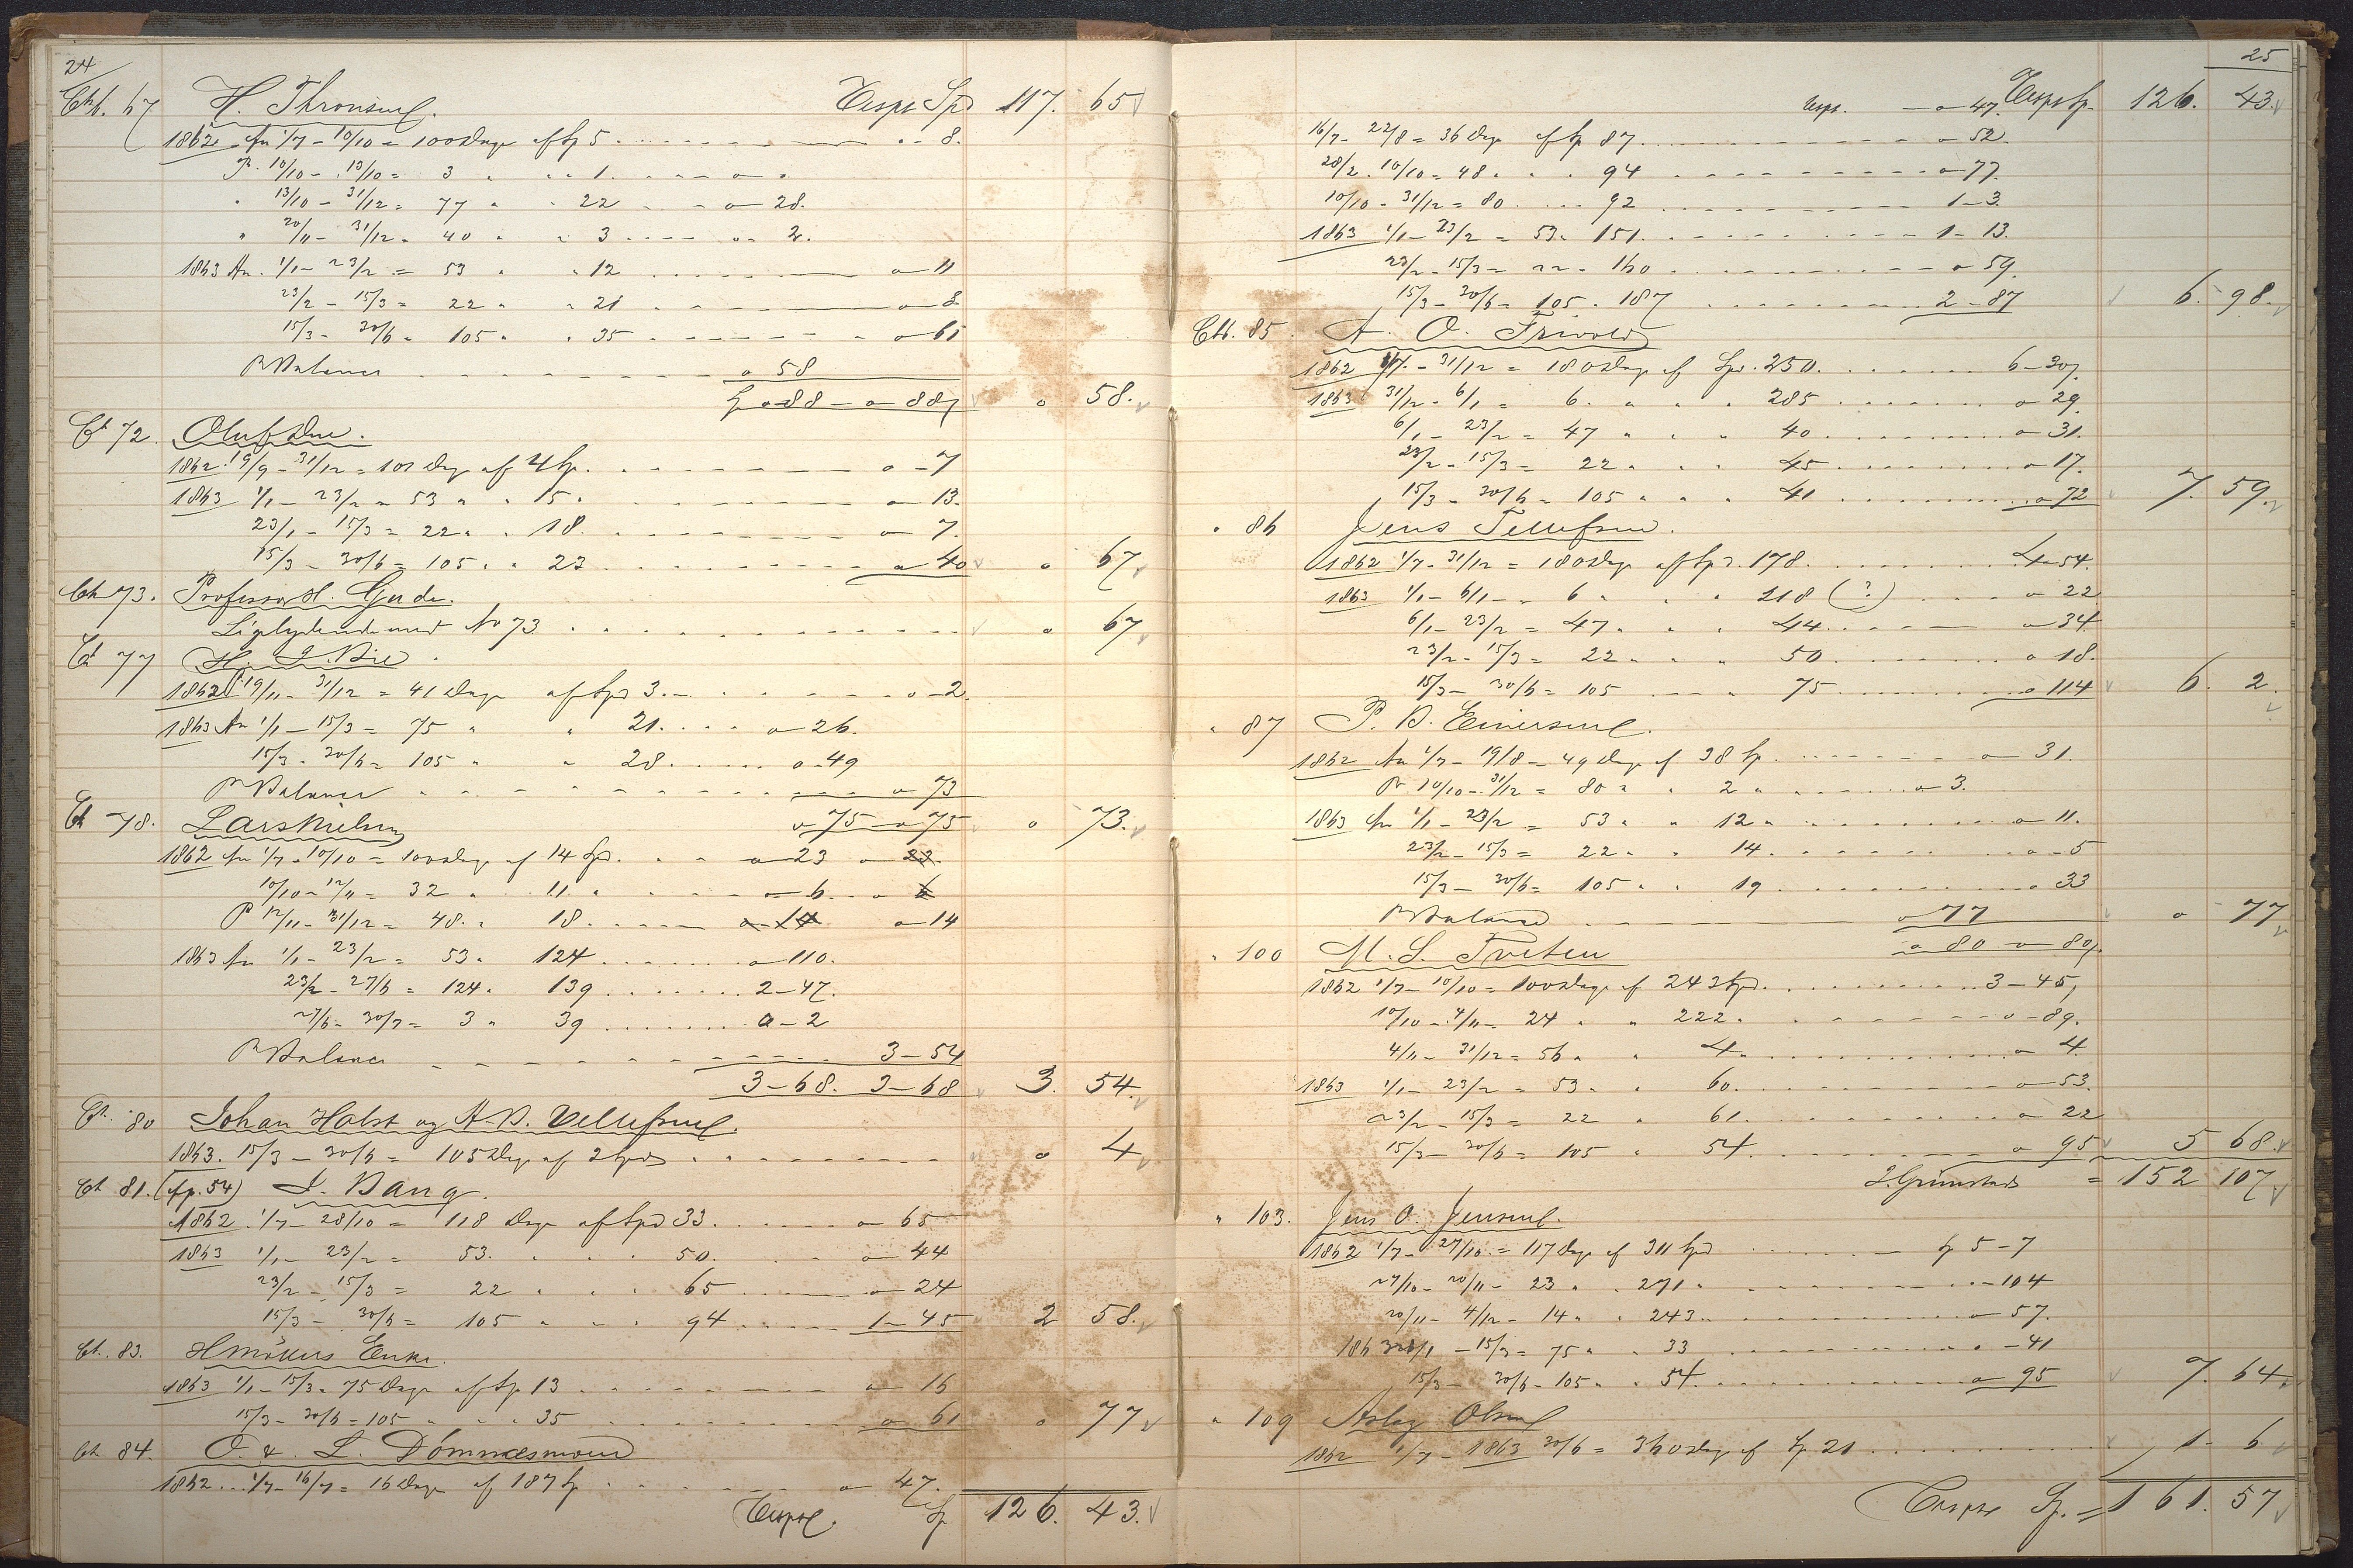 24
H. Thronsen. Transp. Spd 117. 65
1862 fra 1/7 - 10/10 = 100 Dage af Sp 5 8.
10/10 - 13/10 = 3 " " 1.
13/10 - 31/12 = 77 " " 22 o 28.
" 20/11 - 31/12 = 40 " " 3 2.
1863 fra 1/1 - 23/2 = 53 " " 12 o 11
23/2 - 15/3 = 22 " " 21 o 8
15/3 - 30/6 = 105 " " 35 o 61
pr Balance o 58
o 88 - o 88 o 58.
Ct 72. Oluf Due.
1862. 19/9 - 31/12 = 101 Dag af 4 Sp. o - 7
1863 1/1 - 23/2 = 53 " " 15 " o 13.
23/1 - 15/3 = 22 " " 18. o 7.
15/3 - 30/6 = 105 " " 23 o 40 o 67
Ct 73. Professor H. Gude.
Ligelydende med No 73 o 67
Ct 77 H. J. Bie
1862 19/11 - 31/12 = 41 Dage af Spd 3. o - 2
1863 fra 1/1 - 15/3 = 75 " " 21. o 26.
15/3 - 30/6 = 105 " " 28. o 49
pr Balance o 73
Ct 78. Lars Nielsen o 75 o 75 o 73.
1862 fra 1/7 - 10/10 = 100 Dage af 14 Spd. o 23 o 23.
10/10 - 12/11 = 32 " 11 " o 6 o 6
12/11 - 31/12 = 48. " 18. o 14 o 14
1863 fra 1/1 - 23/2 = 53. 124 o 110.
23/2 - 27/6 = 124. 139 2 - 47.
27/6 - 30/7 = 3 " 39 o - 2
pr Balance 3 - 54
3 - 68. 3 - 68 3. 54.
Ct. 80 Johan Holst og A. B. Vellefsen.
1863. 15/3 - 30/6 = 105 Dage af 2 Spd o 4
Ct 81. (fp. 54) J. Bang.
1862 1/7 - 28/10 = 118 Dage af Spd 33. o 65
1863 1/1 - 23/2 = 53. " " 50. o 44
23/2 - 15/3 = 22 " " " 65 o 24
15/3 - 30/6 = 105 " " " 94 1 - 45 2 58.
Ct. 83. H Møllers Enke.
1863 1/1 - 15/3 = 75 Dage af Sp 13 o 16
15/3 - 30/6 = 105 " " " 35 o 61 o 77
Ct 84. O. & L. Dømmesmoen
1862 1/7 - 16/7 = 16 Dage af 187 Sp o 47.
Transp. Sp 126. 43.
25
Transp. o 47. Transp Sp. 126. 43.
16/7 - 22/8 = 36 Dage af Sp 87 o 52.
28/2 - 10/10 = 48 " " " 94 o 77.
10/10 - 31/12 = 80 92 1 - 3.
1863 1/1 - 23/2 = 53. 151. 1 - 13.
23/2 - 15/3 = 22 " 160 o 59.
15/3 - 30/6 = 105 " 187 2 - 87 6. 98.
Ct. 85. A. O. Trivold
1862 1/7 - 31/12 = 180 Dage af Spd. 250. 6 - 30
1863 31/12 - 6/1 = 6. " " " 285 o 29.
6/1 - 23/2 = 47 " " " 40 o 31.
23/2 - 15/3 = 22 " " " 45 o 17.
15/3 - 30/6 = 105 " " " 41 o 72 7. 59.
" 86 Jens Tellefsen.
1862 1/7 - 31/12 = 180 Dage af Spd. 178. 4 - 54.
1863 1/1 - 6/1 - " 6 " " " 218 (?) o 22
6/1 - 23/2 = 47 " " " 44. o 34
23/2 - 15/3 = 22 " " " 50. o 18.
15/3 - 30/6 = 105 75 o 114 6. 2.
" 87 P. B. Einersen.
1862 fra 1/7 - 19/8 = 49 Dage af 38 Sp. o 31.
10/10 - 31/12 = 80 " " 2 " o 3.
1863 fra 1/1 - 23/2 = 53 " " 12 " o 11.
23/2 - 15/3 = 22 " " 14. o - 5
15/3 - 30/6 = 105 " " 19 o 33
pr Balance o 77 o 77
" 100 M. S. Tveten o 80 o 80
1862 1/7 - 10/10 = 100 Dage af 243 Spd. 3 - 45
10/10 - 4/11 = 24 " " 222. o - 89.
4/11 - 31/12 = 56 " " 4. o 4.
1863 1/1 - 23/2 = 53 " " 60. o 53.
23/2 - 15/3 = 22 " 61. o 22
15/3 - 30/6 = 105 " 54. o 95 5 68.
Grimstad = 152 107
" 103. Jens O. Jensen.
1862 1/7 - 27/10 = 117 Dage af 311 Spd Sp 5 - 7
27/10 - 20/11 - 23 " " 271 " 104
20/11 - 4/12 - 14 " " 243 " o 57.
1863 1/1 - 15/3 = 75 " " 33 - 41
15/3 - 30/6 - 105 " " 54. o 95 7. 64.
" 109 Aslag Olsen
1862 1/7 - 1863 30/6 = 360 Dage af Sp 21 1 - 6
Transp Sp. = 161. 57